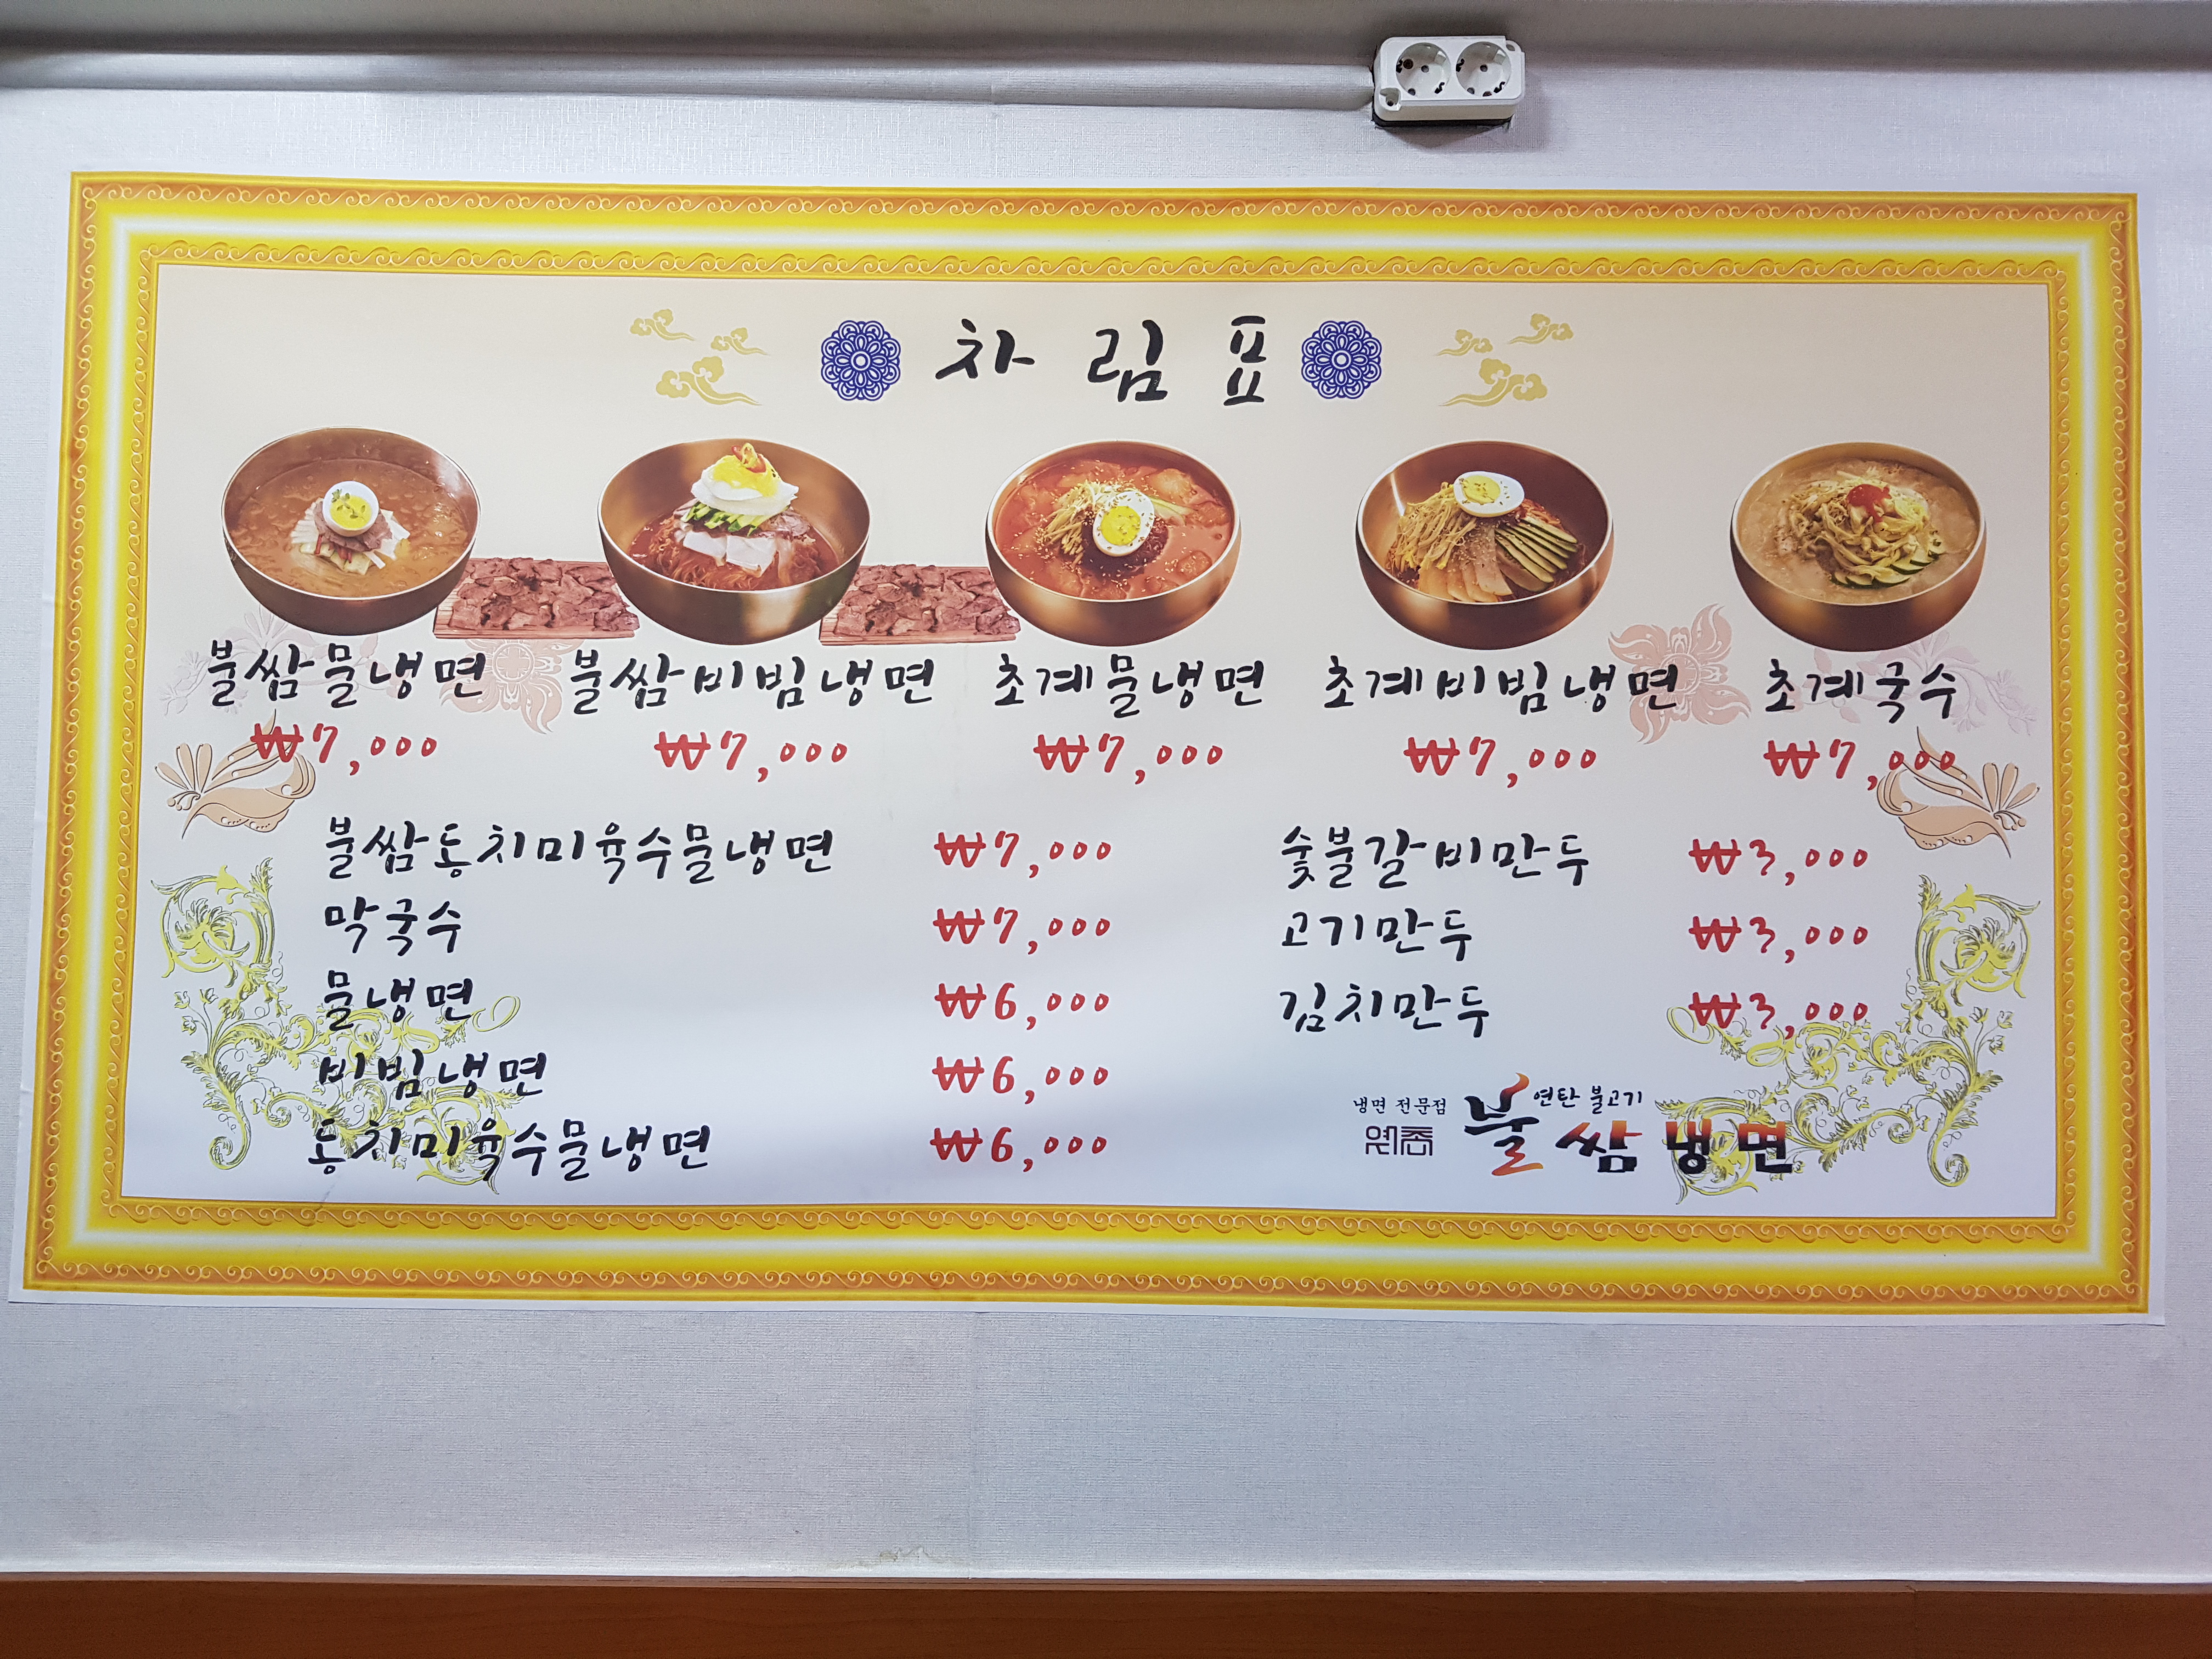 차림표
불쌈물냉면 불쌈비빔냉면 초계물냉면 초계비빔냉면 초계국수
₩7,000 ₩7,000 ₩7,000 ₩7,000 ₩7,000
불쌈동치미육수물냉면 ₩7,000
막국수 ₩7,000
물냉면 ₩6,000
비빔냉면 ₩6,000
동치미육수물냉면 ₩6,000
숯불갈비만두 ₩3,000
고기만두 ₩3,000
김치만두 ₩3,000
냉면 전문점
연탄 불고기
불쌈냉면